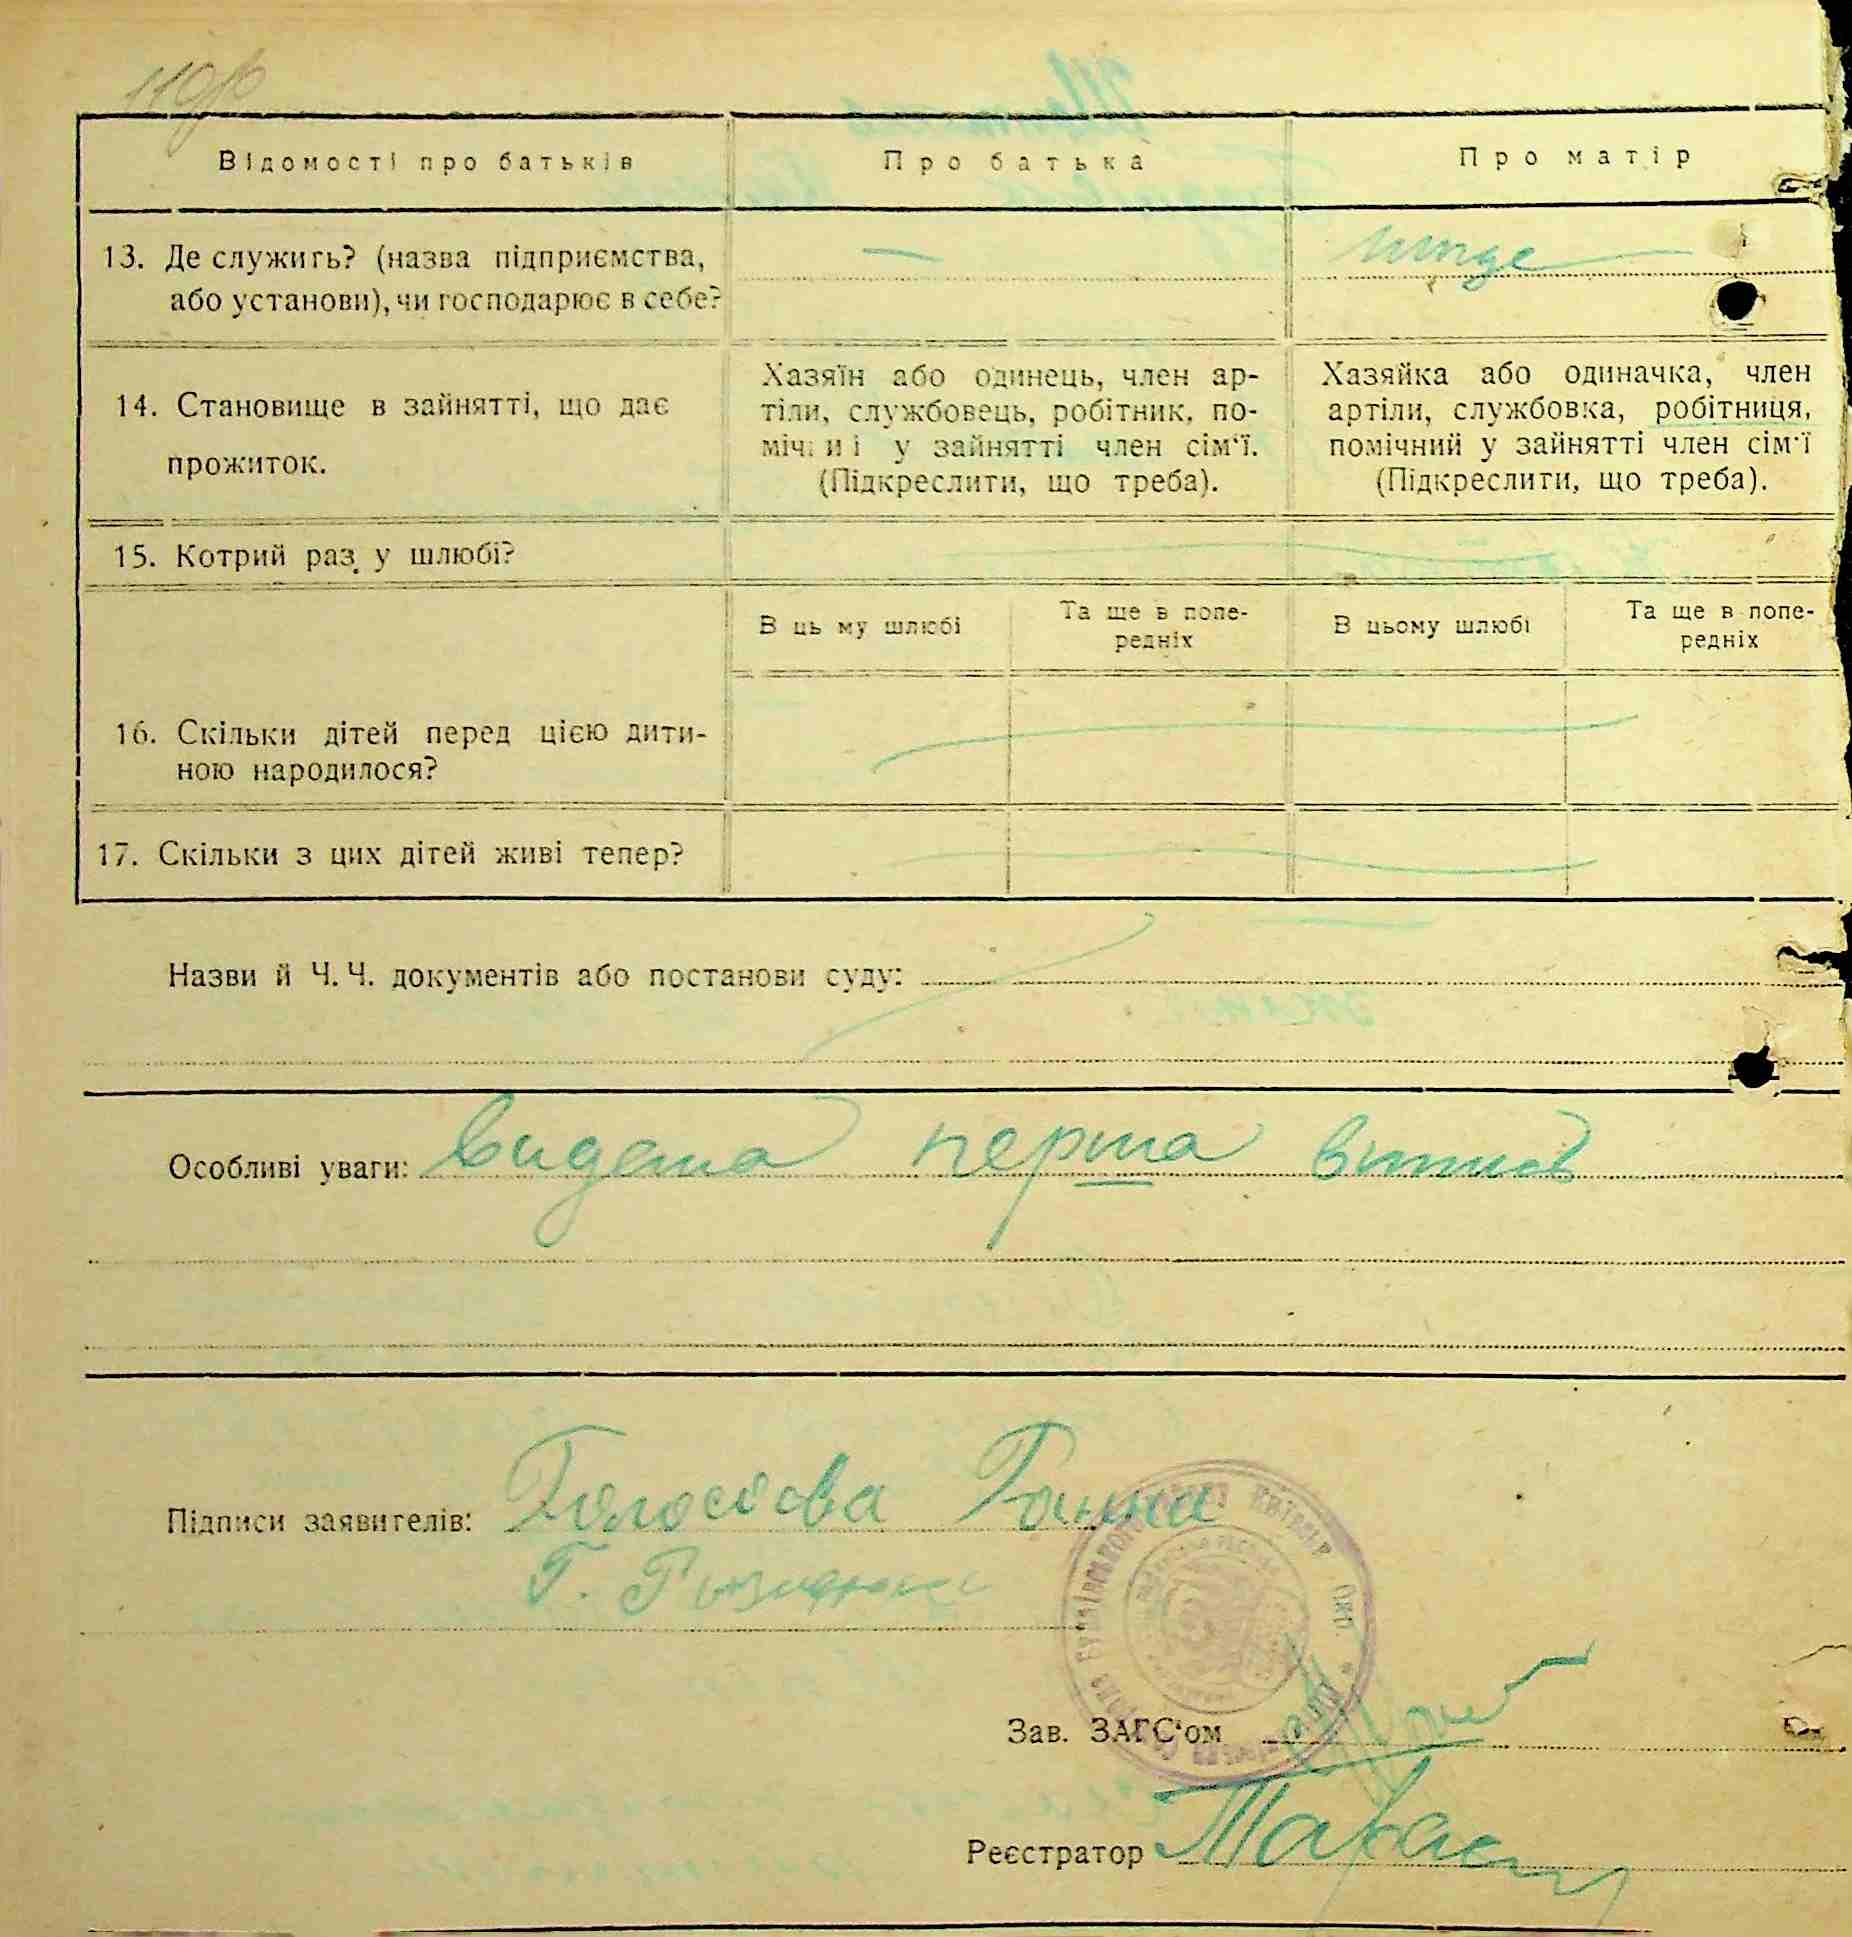 Відомості про батьків
Про батька
Про матір
13. Де служить? (назва підприємства, або установи), чи господарює в себе?
—
нигде
14. Становище в зайнятті, що дає прожиток.
Хазяїн або одинець, член ар-
тіли, службовець, робітник, по-
мічний у зайнятті член сім'ї.
(Підкреслити, що треба).
Хазяйка або одиначка, член
артіли, службовка, робітниця,
помічний у зайнятті член сім'ї
(Підкреслити, що треба).
15. Котрий раз у шлюбі?
В цьому шлюбі
Та ще в попе-
редніх
В цьому шлюбі
Та ще в попе-
редніх
16. Скільки дітей перед цією дити-
ною народилося?
17. Скільки з цих дітей живі тепер?
Назви й Ч. Ч. документів або постанови суду:
Особливі уваги: видана перша
Підписи заявителів: Голосієва Ганна
Г.
Зав. ЗАГС'ом
Реєстратор